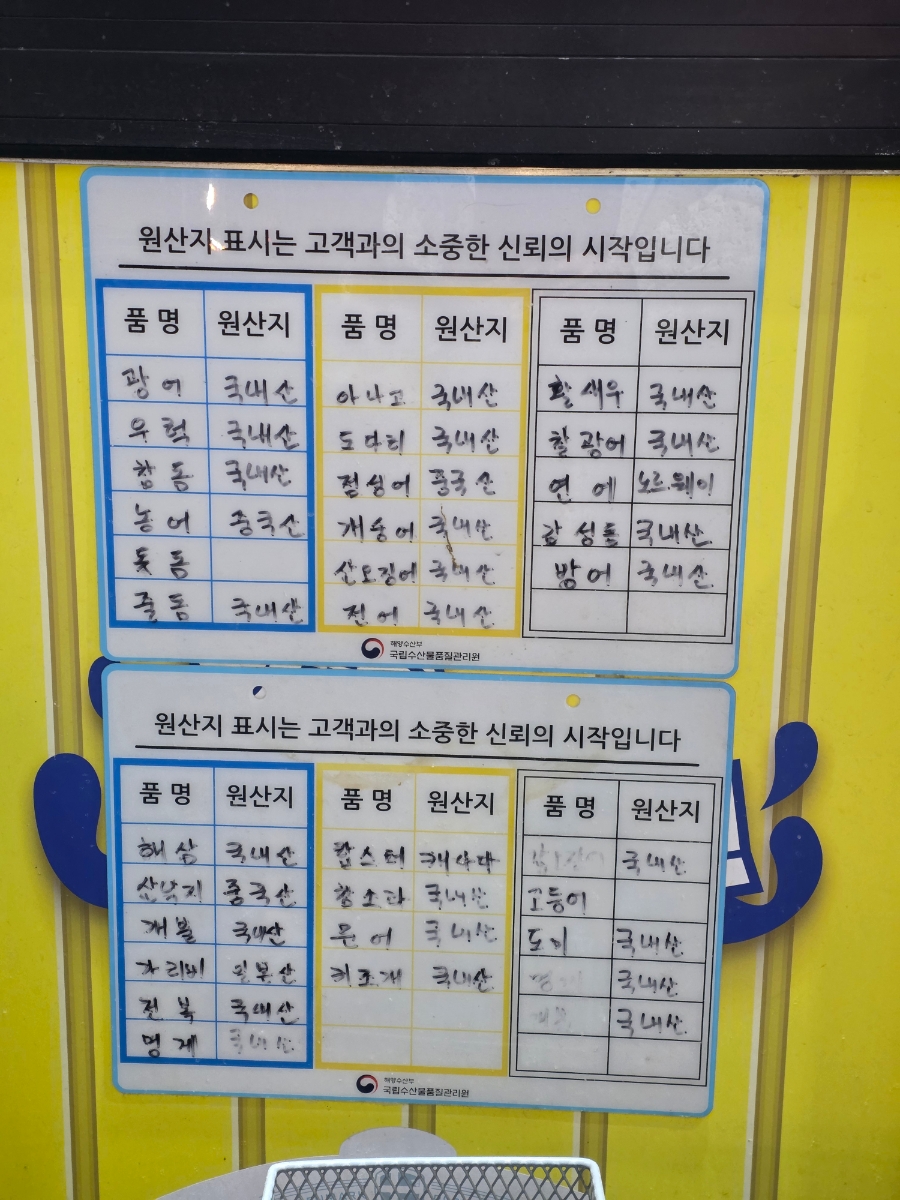 원산지 표시는 고객과의 소중한 신뢰의 시작입니다
품명 원산지 품명 원산지 품명 원산지
광어 국내산 아나고 국내산 활새우 국내산
우럭 국내산 도다리 국내산 찰광어 국내산
참돔 국내산 점성어 중국산 연어 노르웨이
농어 중국산 개숭어 국내산 감성돔 국내산
돗돔 산오징어 국내산 방어 국내산
줄돔 국내산 전어 국내산
해양수산부
국립수산물품질관리원
원산지 표시는 고객과의 소중한 신뢰의 시작입니다
품명 원산지 품명 원산지 품명 원산지
해삼 국내산 랍스터 캐나다 국내산
산낙지 중국산 참소라 국내산 고등어
개불 국내산 문어 국내산 도미 국내산
가리비 일본산 키조개 국내산 국내산
전복 국내산 국내산
멍게 국내산
해양수산부
국립수산물품질관리원